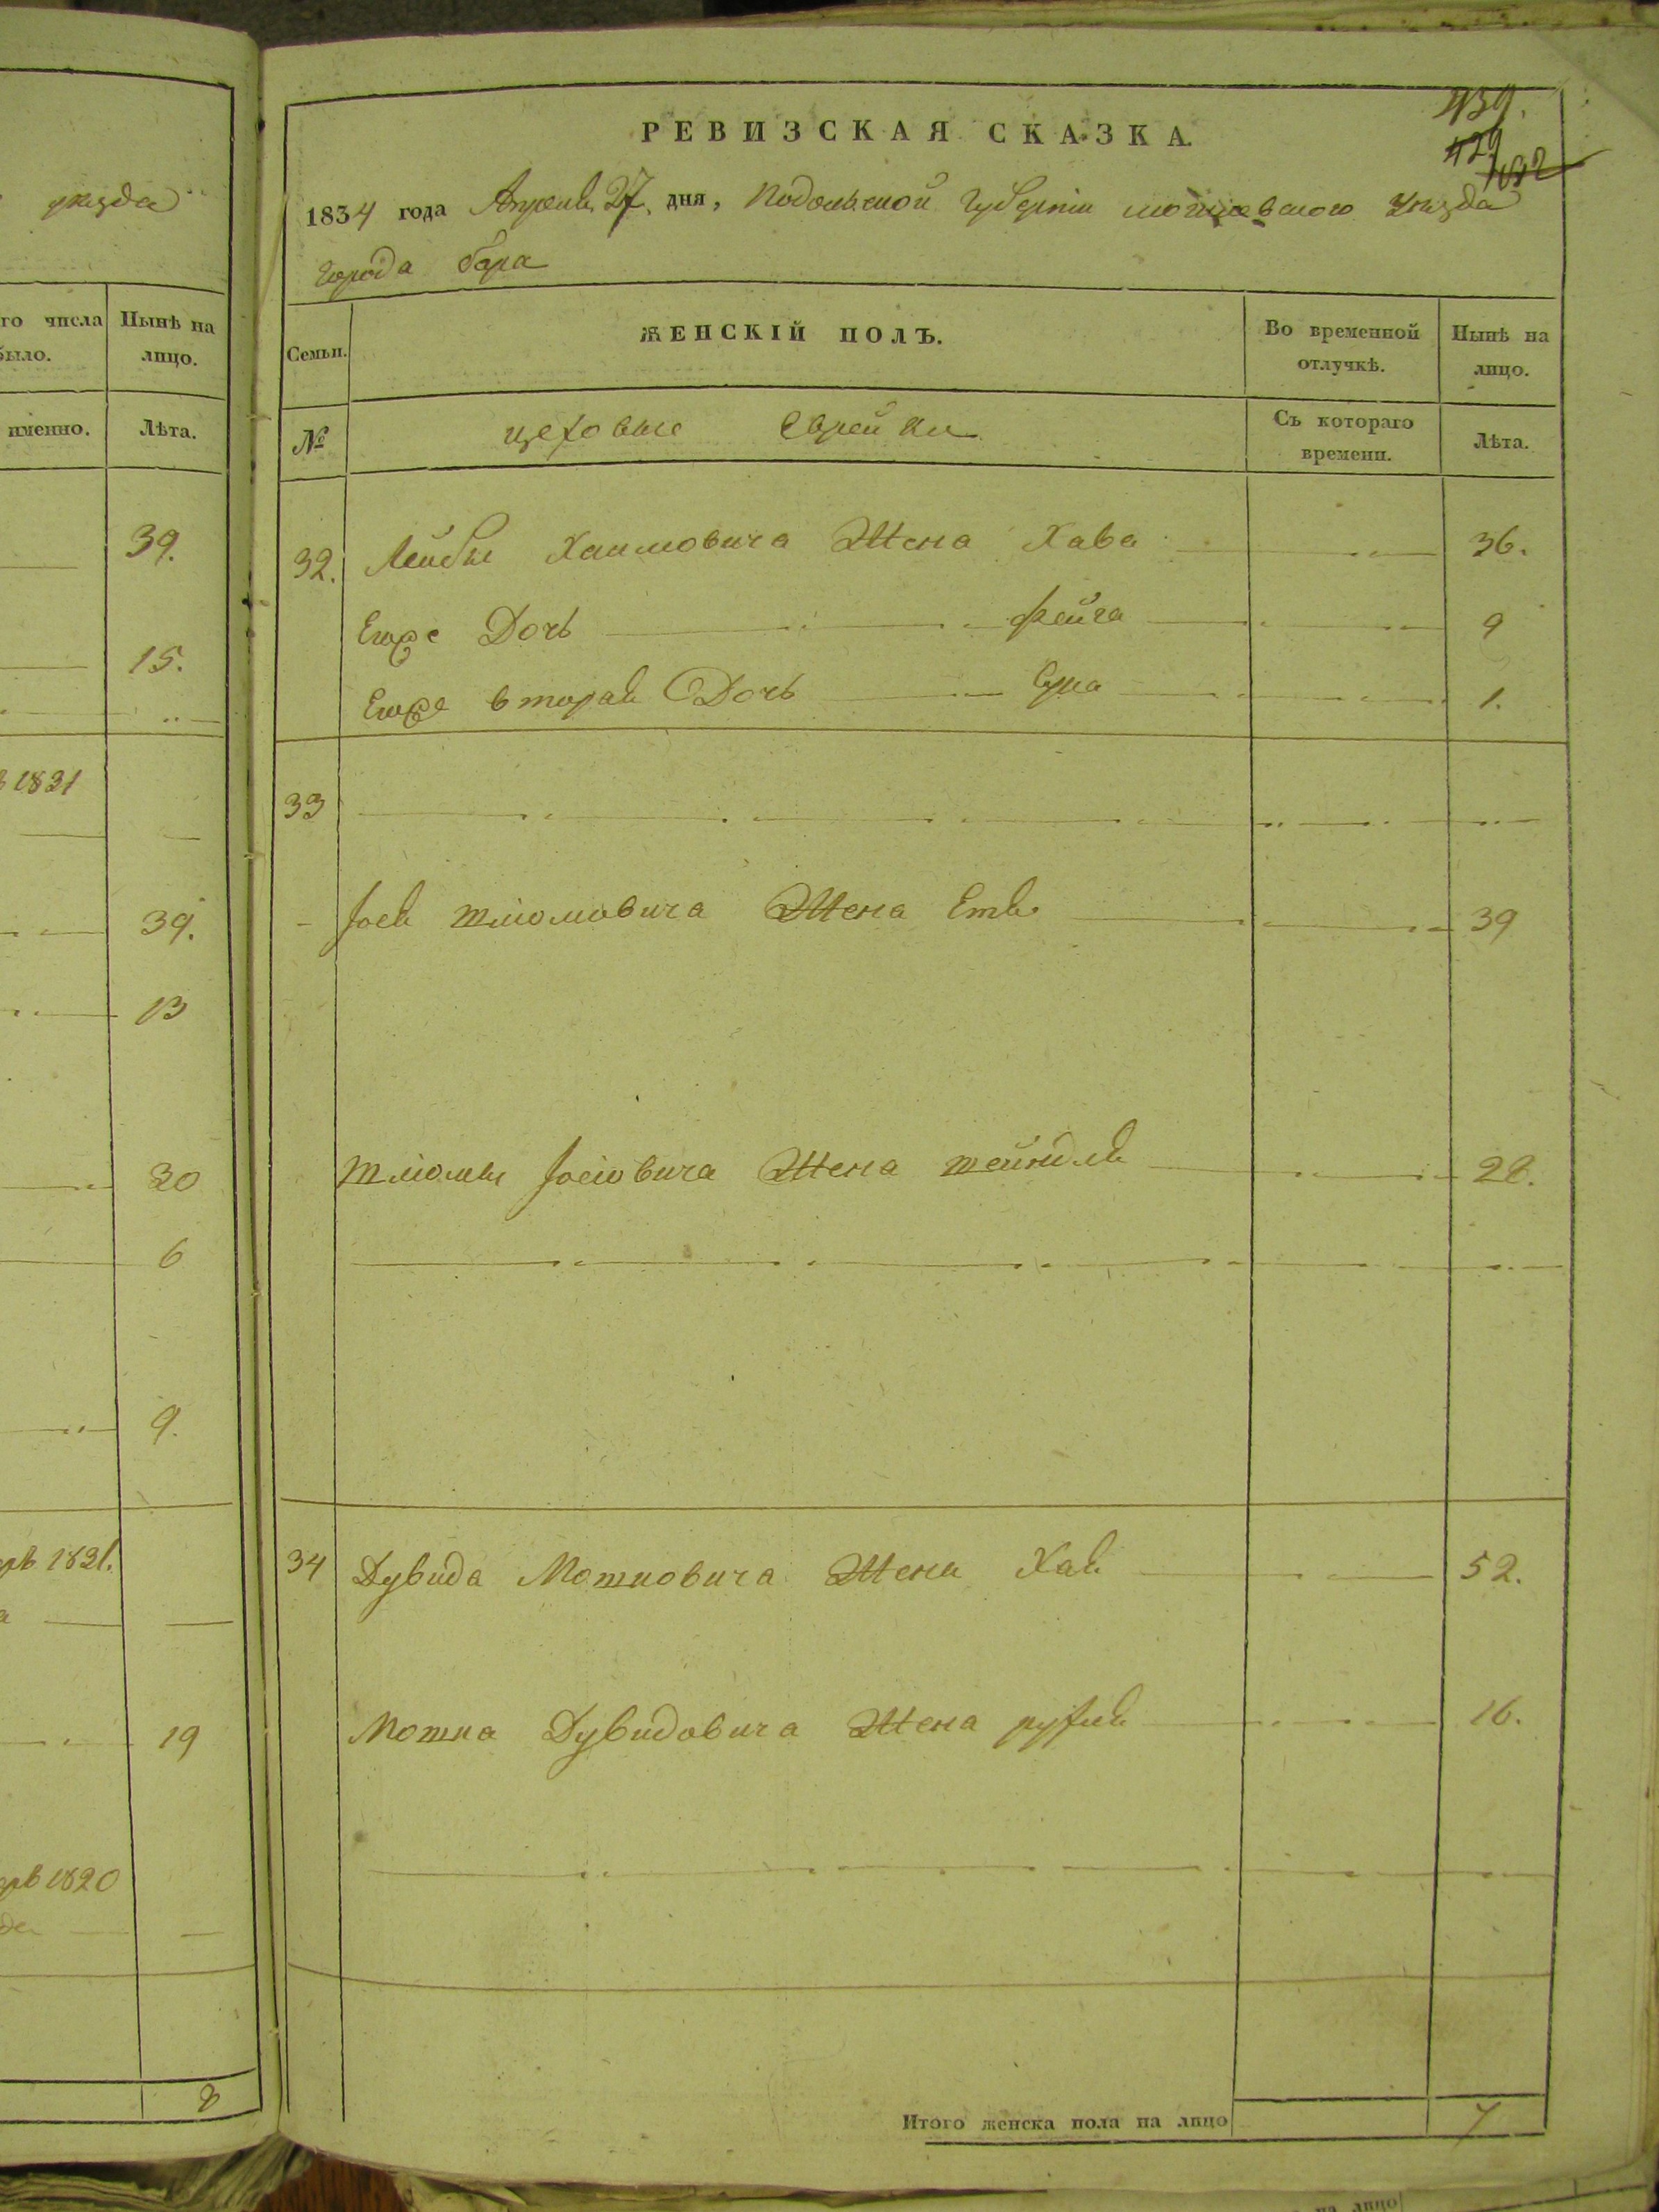 уезда
го числа Нынѣ на
было. лицо.
именно. Лѣта.
39.
15.
1831
39.
13
30
6
9.
1821.
19
1820
8
439.
429
432
РЕВИЗСКАЯ СКАЗКА.
1834 года Апреля 27 дня, Подольской Губернiи могилевского уезда
города бара
Семьи. ЖЕНСКIЙ ПОЛЪ. Во временной отлучкѣ. Нынѣ на лицо.
№ цеховые Еврейки Съ котораго времени. Лѣта.
32. Лейбы Хаимовича Жена Хава 36.
Егоже Дочь Фейга 9
Егоже вторая Дочь 1.
33
Iося Шлiомовича Жена Етя 39
Шлiомы Iосiовича Жена шейндля 28.
34 Дувида Мошковича Жена Хая 52.
Мошка Дувидовича Жена рухля 16.
Итого женска пола на лицо 7
на лицо